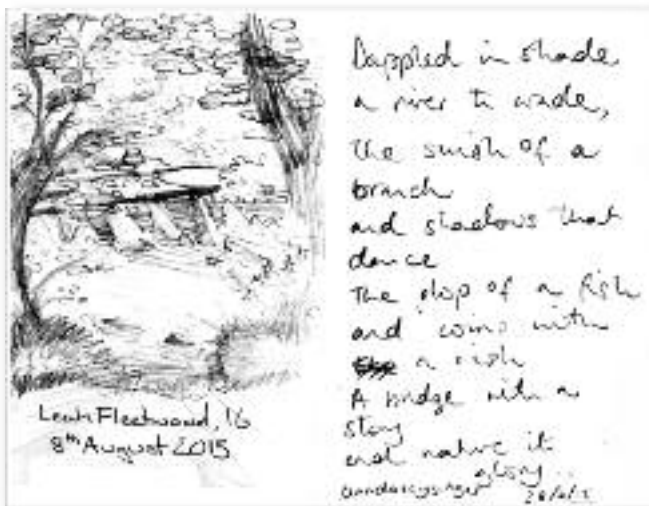 Leah Fleetwood, 16
8th August 2015
Dappled in shade
a river to wade,
the swish of a
branch
and shadows that
dance
The plop of a fish
and coins with
a wish
A bridge with a
story
and native it
glory